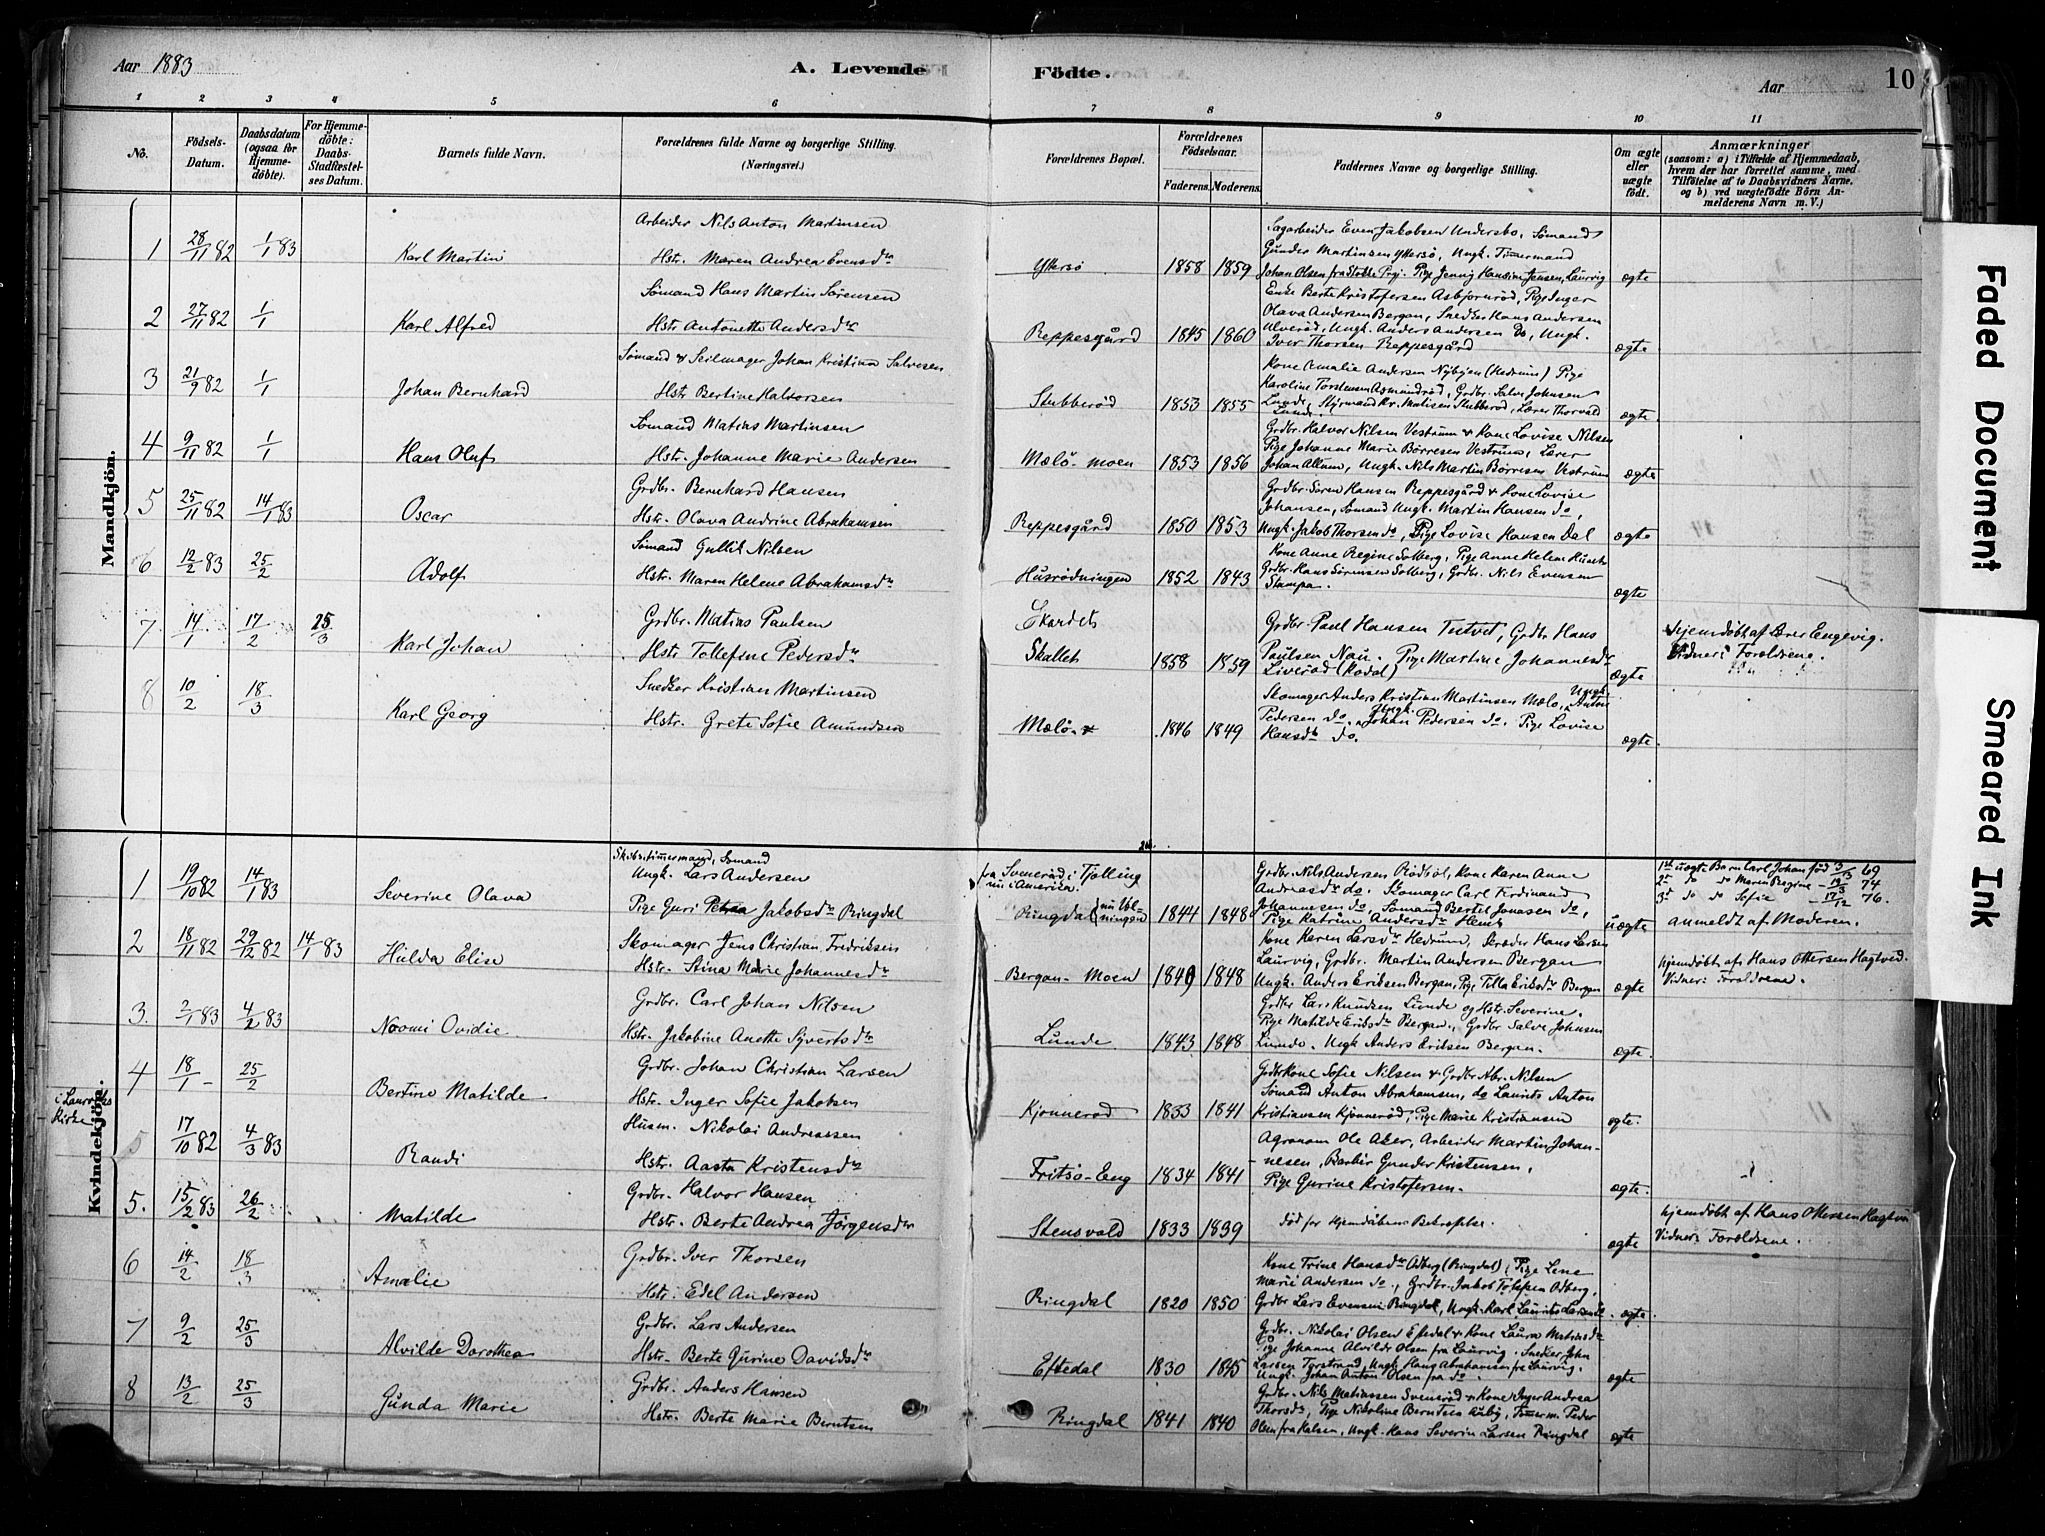 Aar 1883
A. Levende Födte.
Aar
10
1 2 3 4 5 6 7 8 9 10 11
No.
Födsels-Datum.
Daabsdatum (ogsaa for Hjemmedöbte).
For Hjemmedöbte: Daabs-Stadfæstelses Datum.
Barnets fulde Navn.
Forældrenes fulde Navne og borgerlige Stilling.
(Næringsvei.)
Forældrenes Bopæl.
Forældrenes Födselsaar.
Faderens. Moderens.
Faddernes Navne og borgerlige Stilling.
Om ægte eller uægte födt.
Anmærkninger
(saasom: a) i Tilfælde af Hjemmedaab, hvem der har forrettet samme, med Tilföielse af to Daabsvidners Navne, og b) ved uægtefödte Börn Anmelderens Navn m. V.)
Mandkjön.
Arbeider Nils Anton Martinsen
1 28/11 82 1/1 83 Karl Martin Hstr. Maren Andrea Evensdr
Yttersø 1858 1859
Sagarbeider Even Jakobsen Undersbo, Sømand
Gunder Martinsen Yttersø, Ungk. Timmermand
Johan Olsen fra Stokke Prj. Pige Jenny Hansine Jensen, Laurvig
ægte
Sømand Hans Martin Sørensen
2 27/11 82 1/1 Karl Alfred Hstr. Antonette Andersdr
Reppesgård 1845 1860
Enke Berte Kristofersen Asbjørnrød, Pige Inger
Olava Andersen Bergan, Snedker Hans Andersen
Ulverød, Ungk. Anders Andersen do, Ungk.
Iver Thorsen Reppesgård
ægte
Sømand & Seilmager Johan Kristian Salvesen
3 21/9 82 1/1 Johan Bernhard Hstr Bertine Halvorsen
Stubberød 1853 1855
Kone Amalie Andersen Nybyen (Hedrum) Pige
Karoline Torstensen Agmundrød, Grdbr. Salve Johnsen
Lunde, Styrmand Kr. Matisen Stubberød, Lærer Thorvald
Lunde.
ægte.
Sømand Matias Martinsen
4 9/11 82 1/1 Hans Oluf Hstr. Johanne Marie Andersen
Mælø-moen 1853 1856
Grdbr. Halvor Nilsen Vestrum & Kone Lovise Nilsen
Pige Johanne Marie Børresen Vestrum, Lærer
Johan Allum, Ungk. Nils Martin Børresen Vestrum
ægte
Grdbr. Bernhard Hansen
5 25/11 82 14/1 83 Oscar Hstr. Olava Andrine Abrahamsen
Reppesgård 1850 1853
Grdbr. Søren Hansen Reppesgård & Kone Lovise
Johansen, Sømand Ungk. Martin Hansen do,
Ungk. Jakob Thorsen do, Pige Lovise Hansen Dal
ægte
Sømand Gullik Nilsen
6 12/2 83 25/2 Adolf Hstr. Maren Helene Abrahamsdr
Husrødningen 1852 1843
Kone Anne Regine Solberg, Pige Anne Helene
Grdbr. Hans Sørensen Solberg, Grdbr. Nils Evensen
Stampa.
ægte
Grdbr. Matias Paulsen
7. 14/1 17/2 25/3 Karl Johan Hstr Tollefine Pedersdr
Skardet
Skallet 1858 1859
Grdbr. Paul Hansen Tutvet, Grdbr. Hans
Paulsen Nau. Pige Martine Johannesdr
Liverød (Kodal)
ægte
Hjemdøbt af Lærer Engevig.
Vidner: Foreldrene.
Snedker Kristian Martinsen
8 10/2 18/3 Karl Georg Hstr. Grete Sofie Amundsen
Mælø 1846 1849
Skomager Anders Kristian Martinsen Mælø, Ungk. Anton
Pedersen do. Ungk. Johan Pedersen do. Pige Lovise
Hansdr do.
ægte.
Kvindekjön.
Skibstimmermand, Sømand
Ungk. Lars Andersen
1 19/10 82 14/1 83 Severine Olava Pige Guri Petrea Jakobsdr Ringdal
fra Svenerød i Tjølling
nu i Amerika.
Ringdal 1844 1848
Grdbr. Nils Andersen Rødsøl, Kone Karen Anne
Andreasdr do. Skomager Carl Ferdinand
Johannesen do, Sømand Bertel Jonassen do,
Pige Katrine Andersdr Hem
uægte
1st uægte Barn Carl Johan fød 3/3 69
2d do do Maren Regine 74
3d do do Sofie 76.
Anmeldt af Moderen.
Skomager Jens Christian Fredriksen
2 18/11 82 29/12 82 14/1 83 Hulda Elise Hstr. Stina Marie Johannesdr
Bergan-Moen 1849 1848
Kone Karen Larsdr Hedrum, Skræder Hans Larsen
Laurvig, Grdbr. Martin Andersen Bergan
Ungk. Anders Eriksen Bergan, Pige Tilla Eriksdr Bergan
ægte
Hjemdøbt af Hans Ottersen Hagtved.
Vidner: Foreldrene.
Grdbr. Carl Johan Nilsen
3. 2/1 83 4/2 83 Noomi Ovidie Hstr. Jakobine Anette Syvertsdr
Lunde 1843 1848
Grdbr Lars Knudsen Lunde og Hstr. Severine.
Pige Matilde Eriksdr Bergan, Grdbr Salve Johnsen
Lunde. Ungk Anders Eriksen Bergan.
ægte.
Grdbr. Johan Christian Larsen
4 18/1 25/2 Bertine Matilde Hstr. Inger Sofie Jakobsen
Kjønnerød 1833 1841
Grdbrkone Sofie Nilsen & Grdbr Abr. Nilsen
Sømand Anton Abrahamsen, do Laurits Anton
Kristiansen Kjønnerød, Pige Marie Kristiansen
ægte.
i Laurviks
Kirke
Husm. Nikolai Andreassen
5 17/10 82 4/3 83 Randi Hstr. Aasta Kristensdr
Fritsø-Eng 1834 1841
Agronom Ole Aker, Arbeider Martin Johannesen, Barbér Gunder Kristensen,
Pige Gurine Kristofersen.
ægte.
Grdbr. Halvor Hansen
5. 15/2 83 26/2 Matilde Hstr. Berte Andrea Jørgensdr
Stensvold 1833 1839
død før Hjemdåbens Bekræftelse.
ægte
Hjemdøbt af Hans Ottersen Hagtved
Vidner: Forældrene.
Grdbr. Iver Thorsen
6 14/2 18/3 Amalie Hstr. Edel Andersen
Ringdal 1820 1850
Kone Trine Hansdr Odberg (Ringdal), Pige Lene
Marie Andersen do, Grdbr. Jakob Tollefsen Odberg,
Grdbr Lars Evensen Ringdal, Ungk. Karl Laurits Larsen do.
ægte.
Grdbr. Lars Andersen
7 9/2 25/3 Alvilde Dorothea Hstr. Berte Gurine Davidsdr
Eftedal 1830 1845
Grdbr. Nikolai Olsen Eftedal & Kone Laura Matiasdr
Pige Johanne Alvilde Olsen fra Laurvig. Snedker John
Larsen Torstrand, Ungk Hans Abrahamsen fra Laurvig.
Ungk. Johan Anton Olsen fra do.
ægte
Grdbr. Anders Hansen
8 13/2 25/3 Gunda Marie Hstr. Berte Marie Berntsen
Ringdal 1841 1840
Grdbr. Nils Matiassen Svensrød & Kone Inger Andrea
Thorsdr, Pige Nikoline Berntsen Aaby, Tømmerm. Peder
Olsen fra Halsen, Ungk. Hans Severin Larsen Ringdal
ægte
Faded Document
Smeared Ink